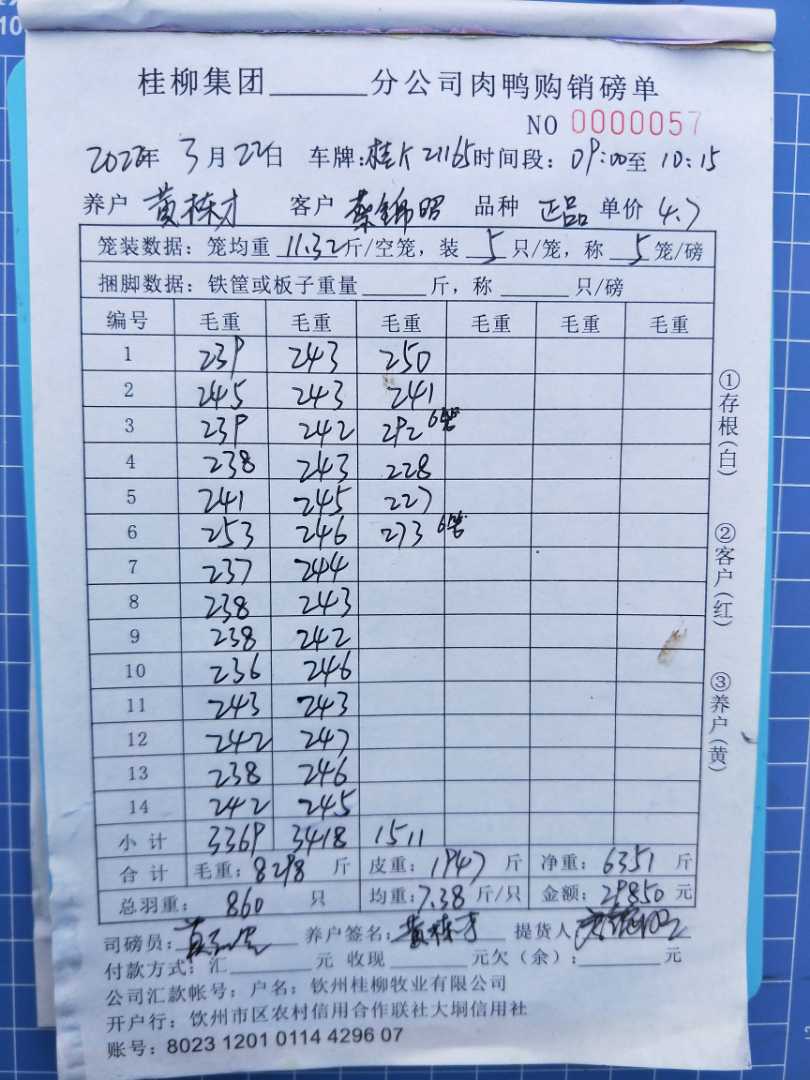 桂柳集团______分公司肉鸭购销磅单
NO 0000057
2022年 3月22日 车牌:桂K21165时间段:09:00至10:15
养户 黄栋才 客户 蔡锦昭 品种 正品 单价 4.7
笼装数据:笼均重 11.32斤/空笼,装 5 只/笼,称 5 笼/磅
捆脚数据:铁筐或板子重量______斤,称______只/磅
编号 毛重 毛重 毛重 毛重 毛重 毛重
1 239 243 250
2 245 243 241
3 239 242 292 6笼
4 238 243 228
5 241 245 227
6 253 246 273 6笼
7 237 244
8 238 243
9 238 242
10 236 246
11 243 243
12 242 247
13 238 246
14 242 245
小计 3369 3418 1511
合计 毛重:8298 斤 皮重:1947 斤 净重:6351 斤
总羽重: 860 只 均重:7.38 斤/只 金额:29850 元
司磅员: 养户签名:黄栋才 提货人
付款方式:汇______元 收现______元欠(余):______元
公司汇款帐号:户名:钦州桂柳牧业有限公司
开户行:钦州市区农村信用合作联社大垌信用社
账号:8023 1201 0114 4296 07
①存根(白)
②客户(红)
③养户(黄)